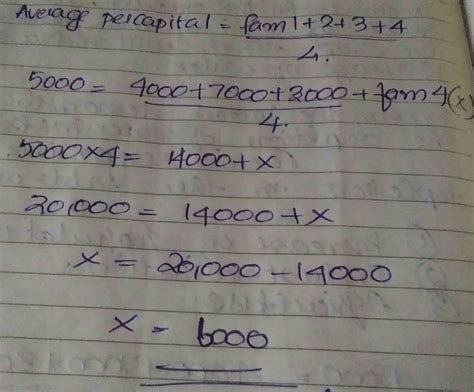 Average percapital = fam 1+2+3+4
4.
5000 = 4000+7000+3000+fam 4(x)
4.
5000×4= 14000+x
20,000 = 14000+x
x = 20,000-14000
x = 6000